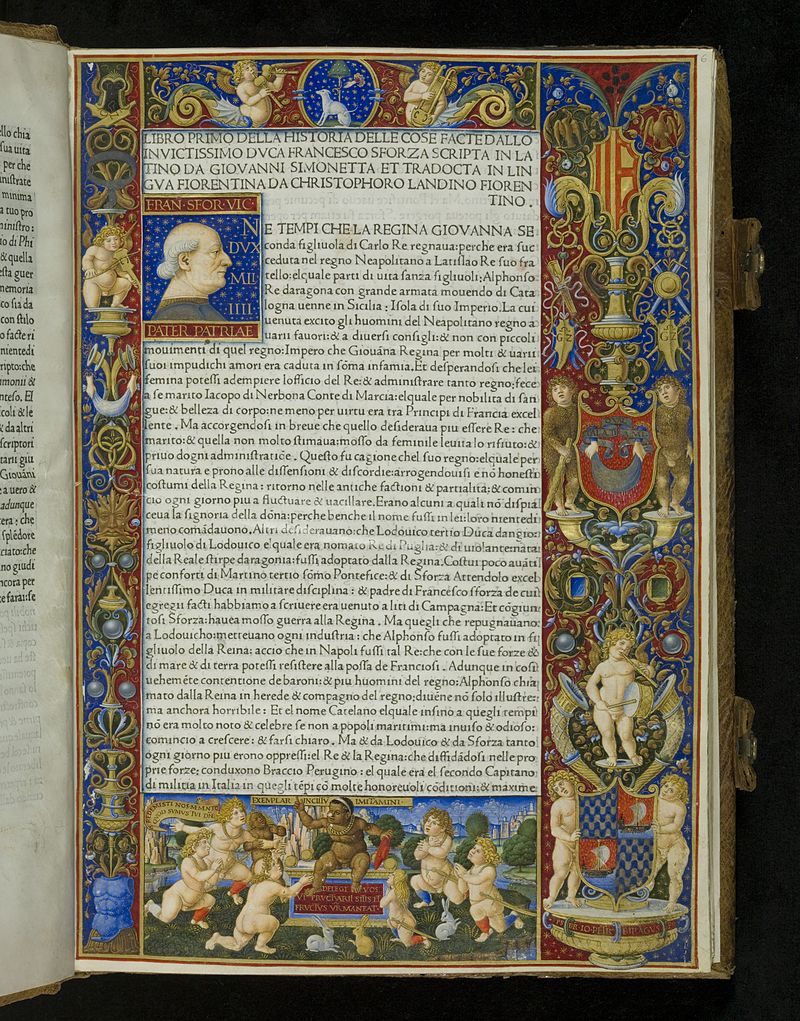 ello chia
sua uita
per che
inistrate
minima
a tuo pro
ministro:
io di Phi
& quella
esta guer
memoria
co sia da
con stilo
o facte ri
nientedi
ripto:che
imonii &
nteso. El
coli & le
& da altri
scriptori
tarii giu
Giouāni
a uero &
adunque
era: che
splēdore
ciato:che
no giudi
ncora per
e farai:se
6
LIBRO PRIMO DELLA HISTORIA DELLE COSE FACTE DALLO
INVICTISSIMO DVCA FRANCESCO SFORZA SCRIPTA IN LA
TINO DA GIOVANNI SIMONETTA ET TRADOCTA IN LIN
GVA FIORENTINA DA CHRISTOPHORO LANDINO FIOREN
TINO .
FRAN·SFOR·VIC
N
DVX
MLI
IIII
PATER PATRIAE
E TEMPI CHE LA REGINA GIOVANNA SE
conda figliuola di Carlo Re regnaua:perche era suc
ceduta nel regno Neapolitano a Latislao Re suo fra
tello:elquale parti di uita sanza figliuoli;Alphonso
Re daragona con grande armata mouendo di Cata
logna uenne in Sicilia : Isola di suo Imperio. La cui
uenuta excito gli huomini del Neapolitano regno a
uarii fauori:& a diuersi consigli:& non con piccoli
mouimenti di quel regno:Impero che Giouāna Regina per molti & uarii
suoi impudichi amori era caduta in sōma infamia.Et desperandosi che lei
femina potessi adempiere lofficio del Re:& administrare tanto regno;fece
a se marito Iacopo di Nerbona Conte di Marcia:elquale per nobilita di san
gue:& belleza di corpo:ne meno per uirtu era tra Principi di Francia excel
lente . Ma accorgendosi in breue che quello desideraua piu essere Re : che
marito:& quella non molto stimaua:mosso da feminile leuita lo rifiuto:&
priuo dogni administratiōe . Questo fu cagione chel suo regno:elquale per
sua natura e prono alle dissensioni & discordie:arrogendouisi e nō honesti
costumi della Regina : ritorno nelle antiche factioni & partialita:& comin
cio ogni giorno piu a fluctuare & uacillare.Erano alcuni a quali nō dispia
ceua la signoria della dōna:perche benche il nome fussi in lei:loro niēntedi
meno comādauono.Altri desiderauano:che Lodouico tertio Duca dangio:
figliuolo di Lodouico elquale era nomato Re di Puglia:& di
della Reale stirpe daragonia:fussi adoptato dalla Regina.Costui poco auāti
pe conforti di Martino tertio sōmo Pontefice:& di Sforza Attendolo excel
lentissimo Duca in militare disciplina : & padre di Francesco sforza de cui
egregii facti habbiamo a scriuere era uenuto a liti di Campagna:Et cōgiun
tosi Sforza:hauea mosso guerra alla Regina . Ma quegli che repugnauano
a Lodouicho:metteuano ogni industria : che Alphonso fussi adoptato in fi
gliuolo della Reina: accio che in Napoli fussi tal Re:che con le sue forze &
di mare & di terra potessi resistere alla possa de Franciosi . Adunque in cosi
uehemēte contentione de baroni:& piu huomini del regno:Alphonso chia
mato dalla Reina in herede & compagno del regno;diuēne nō solo illustre:
ma anchora horribile : Et el nome Catelano elquale insino a quegli tempi
nō era molto noto & celebre se non a popoli maritimi:ma inuiso & odioso:
comincio a crescere: & farsi chiaro . Ma & da Lodouico & da Sforza tanto
ogni giorno piu erono oppressi:el Re & la Regina:che diffidādosi nelle pro
prie forze; conduxono Braccio Perugino : el quale era el secondo Capitano
di militia in Italia in quegli tēpi cō molte honoreuoli cōditioni:& maxime
GZ
GZ
EXEMPLAR
IMITAMINI·
DELEGI VOS
VT FRVCTVARII SITIS ET
FRVCTVS VR MANEAT